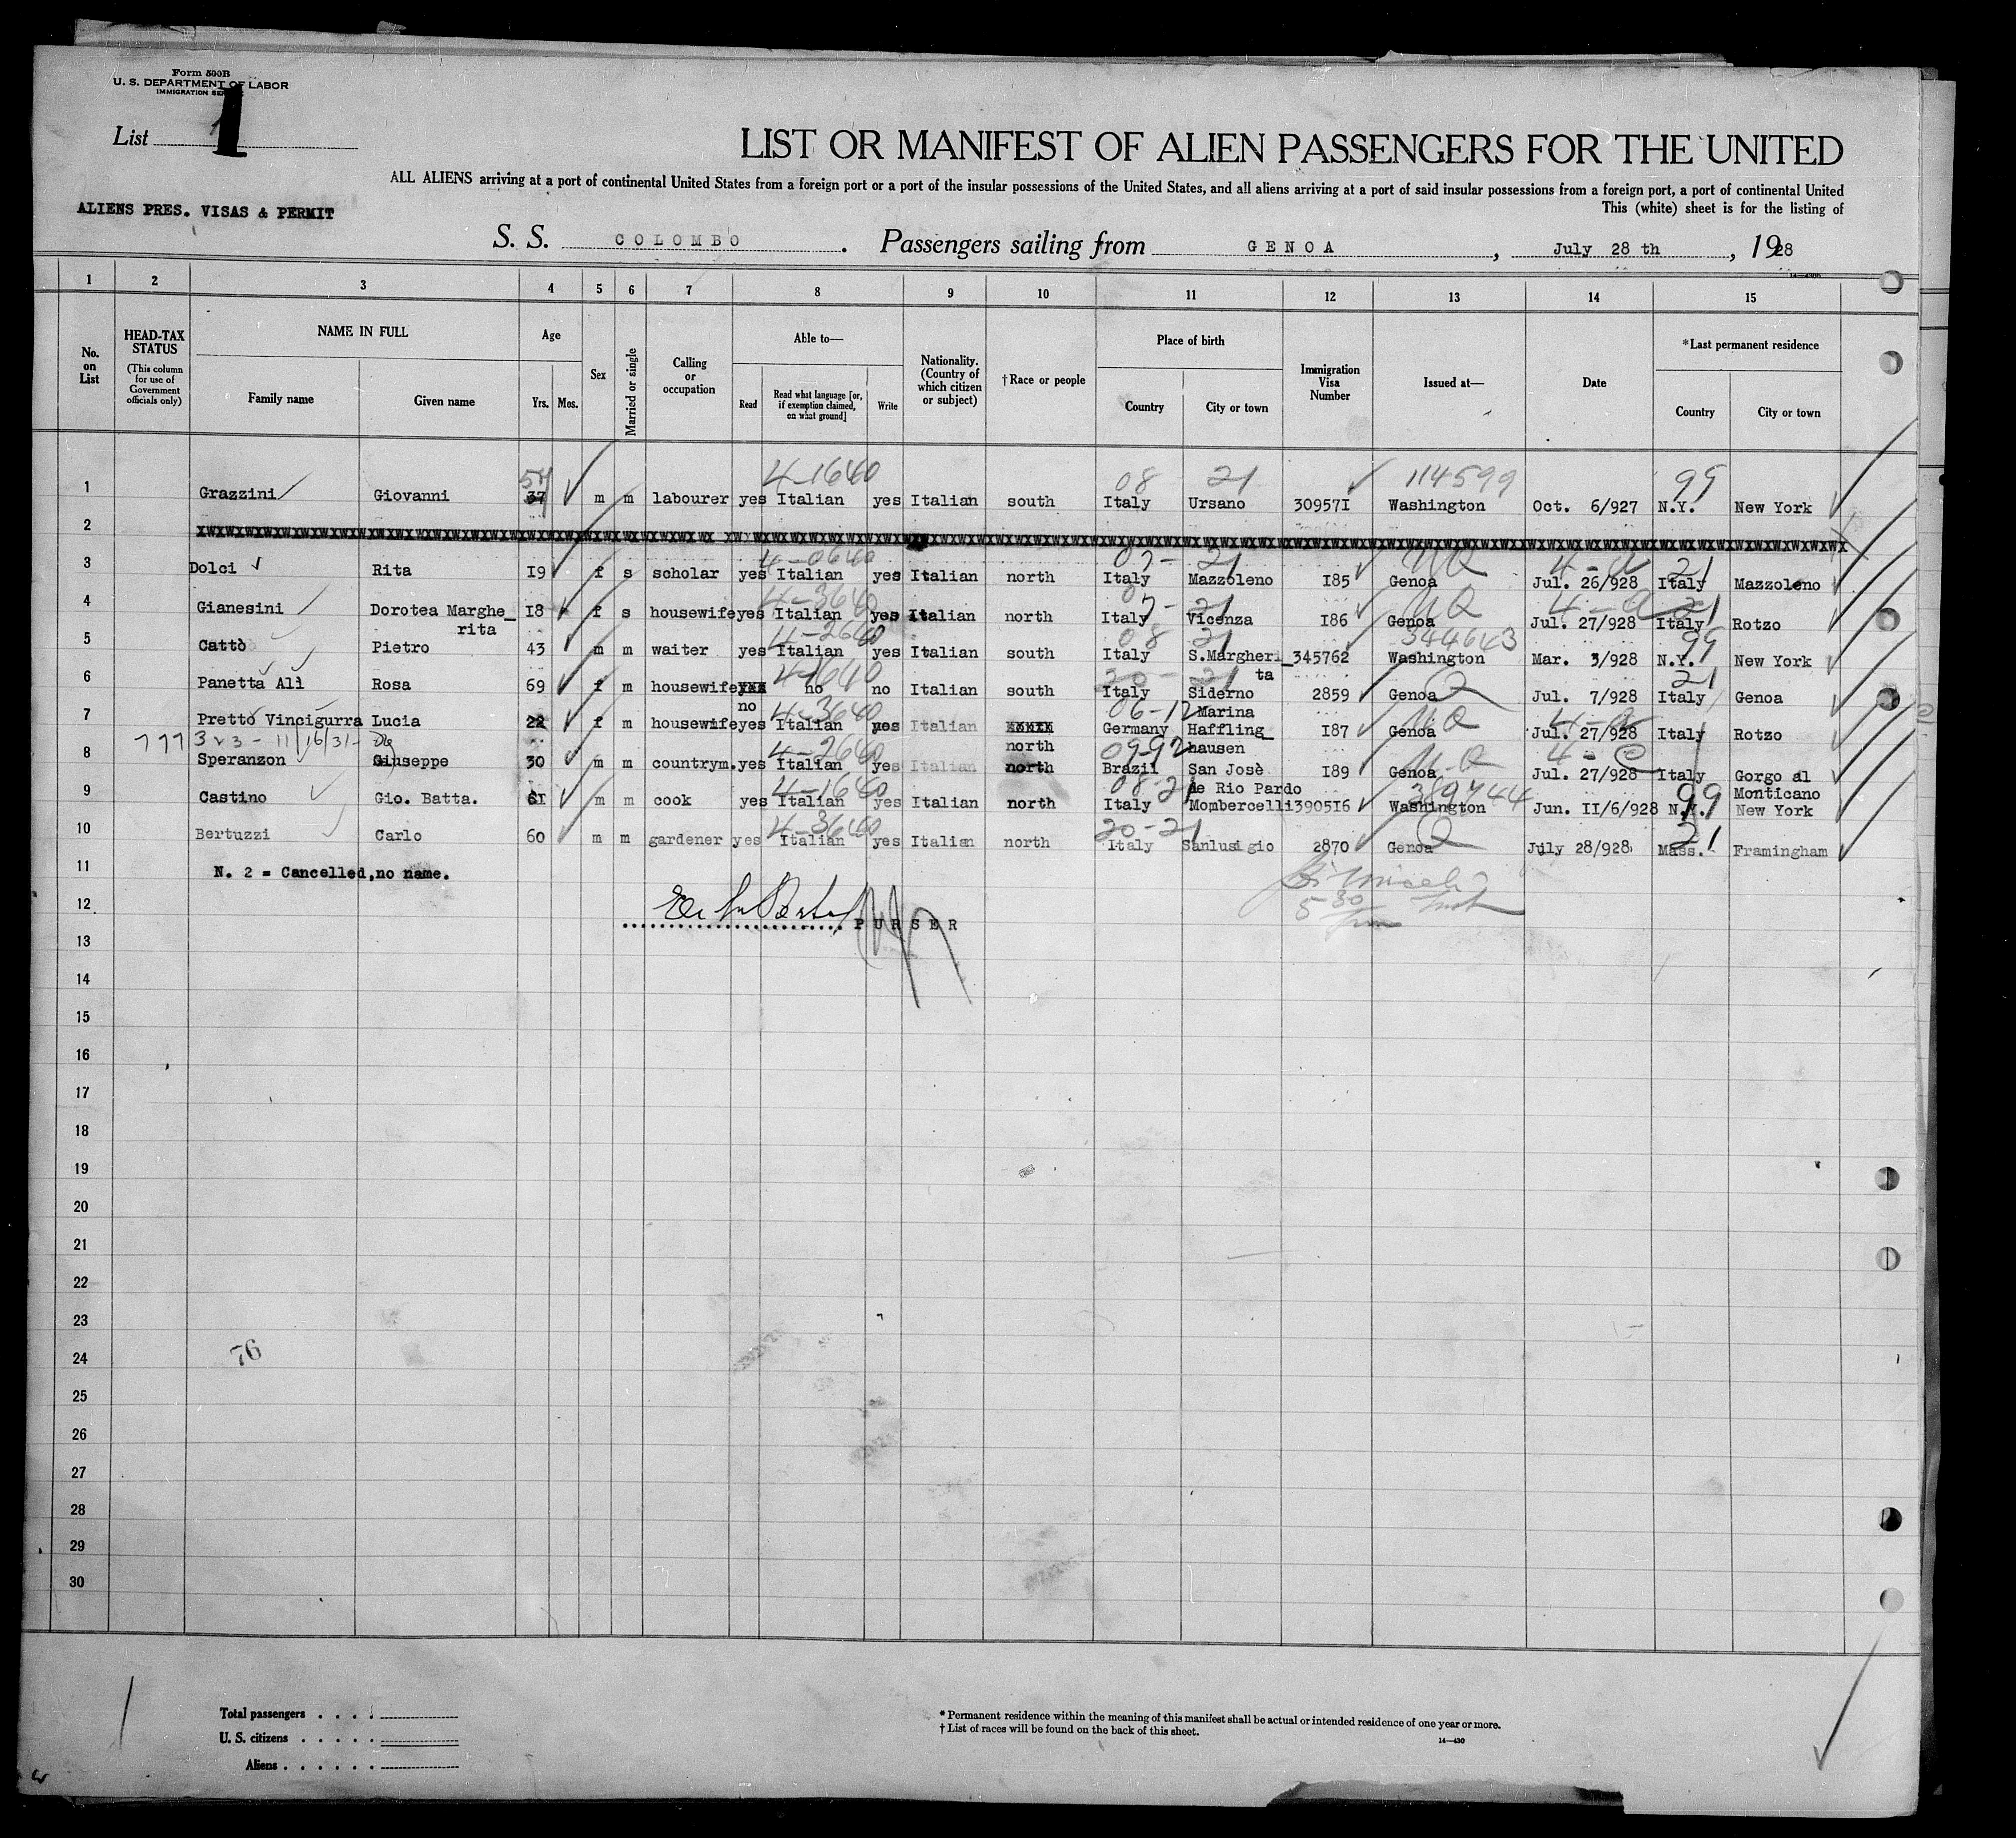 Form 500B
U. S. DEPARTMENT OF LABOR
IMMIGRATION
List 1
LIST OR MANIFEST OF ALIEN PASSENGERS FOR THE UNITED
ALL ALIENS arriving at a port of continental United States from a foreign port or a port of the insular possessions of the United States, and all aliens arriving at a port of said insular possessions from a foreign port, a port of continental United
ALIENS PRES. VISAS & PERMIT
This (white) sheet is for the listing of
S. S. COLOMBO . Passengers sailing from GENOA , July 28 th , 1928
1 2 3 4 5 6 7 8 9 10 11 12 13 14 15
No. on List
HEAD-TAX STATUS (This column for use of Government officials only)
NAME IN FULL
Family name Given name
Age
Yrs. Mos.
Sex
Married or single
Calling or occupation
Able to—
Read Read what language [or, if exemption claimed, on what ground] Write
Nationality. (Country of which citizen or subject)
†Race or people
Place of birth
Country City or town
Immigration Visa Number
Issued at—
Date
*Last permanent residence
Country City or town
4-1640 08 21 114599 99
1 Grazzini Giovanni 37 m m labourer yes Italian yes Italian south Italy Ursano 309571 Washington Oct. 6/927 N.Y. New York
2
4-0640 07- 21 21
3 Dolci Rita 19 f s scholar yes Italian yes Italian north Italy Mazzoleno 185 Genoa Jul. 26/928 Italy Mazzoleno
4-3640 21 21
4 Gianesini Dorotea Marghe_ 18 f s housewife yes Italian yes Italian north Italy Vicenza 186 Genoa Jul. 27/928 Italy Rotzo
rita
4-2640 08 21 344643 99
5 Cattò Pietro 43 m m waiter yes Italian yes Italian south Italy S.Margheri_ 345762 Washington Mar. 3/928 N.Y. New York
ta
4-1640 20-21 21
6 Panetta Alì Rosa 69 f m housewife no no Italian south Italy Siderno 2859 Genoa Jul. 7/928 Italy Genoa
no Marina
4-3640 06-12
7 Pretto Vincigurra Lucia 22 f m housewife yes Italian yes Italian Germany Haffling_ 187 Genoa Jul. 27/928 Italy Rotzo
north hausen
4-2640 09-92
8 Speranzon Giuseppe 30 m m countrym. yes Italian yes Italian north Brazil San Josè 189 Genoa Jul. 27/928 Italy Gorgo al
de Rio Pardo Monticano
4-1640 08-21 99
9 Castino Gio. Batta. 61 m m cook yes Italian yes Italian north Italy Mombercelli 390516 Washington Jun. 11/6/928 N.Y. New York
4-3640 20-21 21
10 Bertuzzi Carlo 60 m m gardener yes Italian yes Italian north Italy Sanlusigio 2870 Genoa July 28/928 Mass. Framingham
11 N. 2 = Cancelled, no name.
12
PURSER
13
14
15
16
17
18
19
20
21
22
23
24 76
25
26
27
28
29
30
Total passengers
U. S. citizens
Aliens
* Permanent residence within the meaning of this manifest shall be actual or intended residence of one year or more.
† List of races will be found on the back of this sheet.
14—430